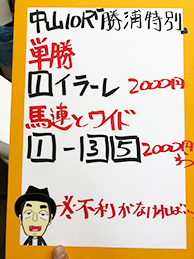 中山10R「勝浦特別」
単勝
1 イラーレ 2000円
馬連とワイド
1-35 2000円
ずつ
…不利がなければ…